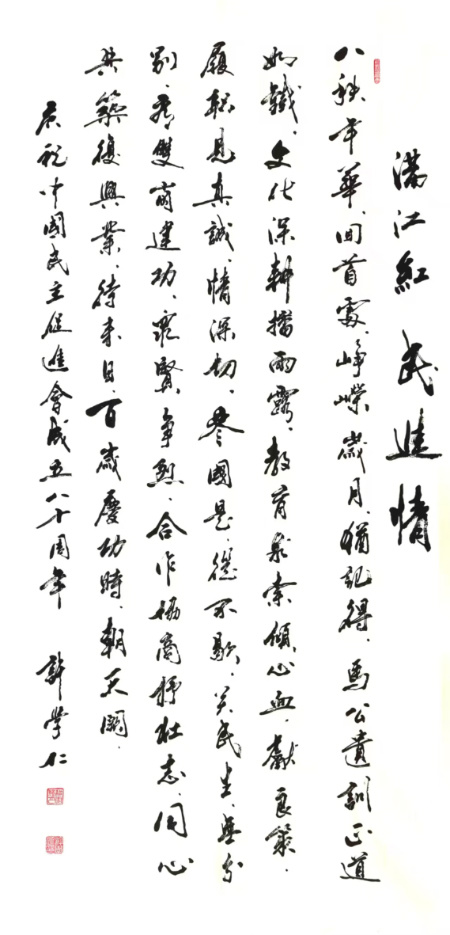 滿江紅 民進情
八秩年華、回首處、崢嶸歲月、猶記得、馬公遺訓正道
如鐵、文化深耕播雨露、教育求索傾心血、獻良策、
履職見真誠、情深切、參國是、從不歇、关民生、無分
別、看雙崗建功、眾賢爭烈、合作協商抒壯志、同心
共築復興業、待来日、百歲慶功時、朝天闕、
慶祝中國民主促進會成立八十周年 許學仁